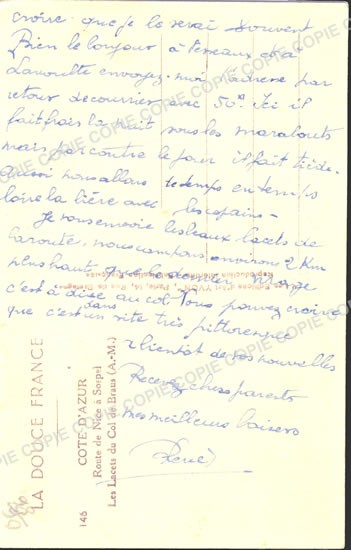 croire que je le serai souvent
Bien le bonjour à
envoyez-moi par
retour de courrier avec 50. Ici il
fait frais la nuit sous les marabouts
mais par contre le jour il fait tiède.
Aussi nous allons de temps en temps
boire la bière avec les copains -
Je vous envoie les beaux lacets de
la route, nous campons environ 2 Km
plus haut que le dernier virage
c'est à dire au col. Vous pouvez croire
que c'est dans un site très pittoresque
A bientôt de vos nouvelles
Recevez chers parents
mes meilleurs baisers
René
LA DOUCE FRANCE
COTE D'AZUR
Route de Nice à Sospel
Les Lacets du Col de Braus (A.-M.)
146
COPIE COPIE COPIE COPIE